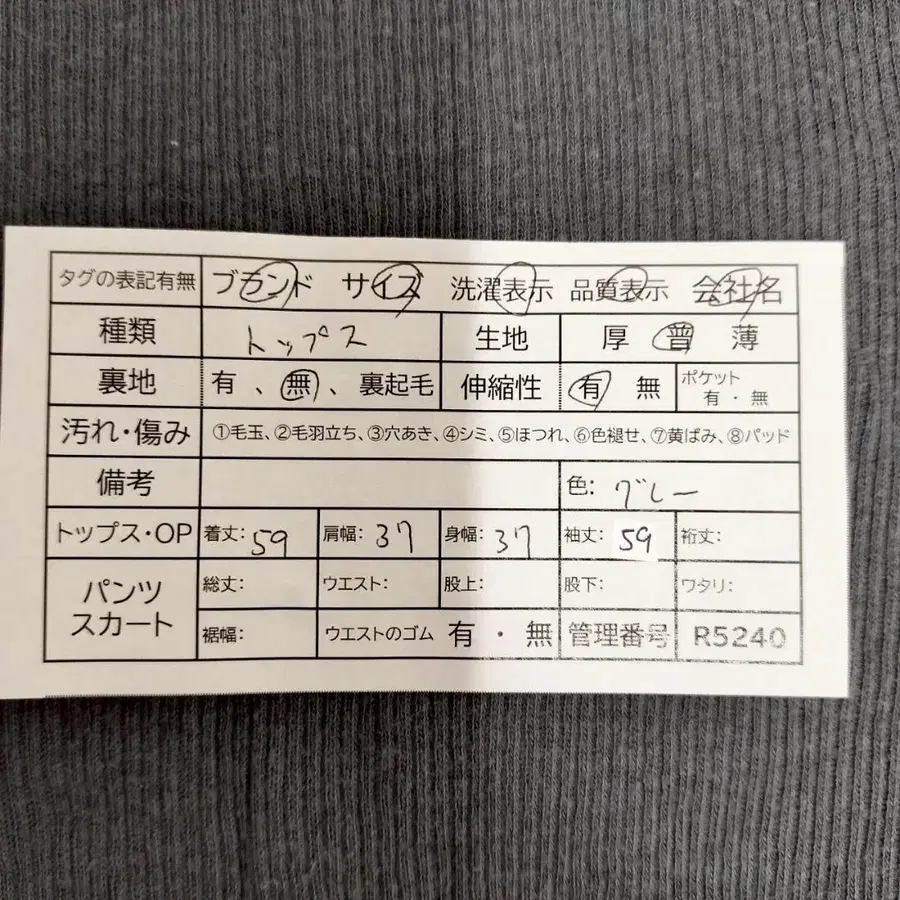 タグの表記有無 ブランド サイズ 洗濯表示 品質表示 会社名
種類 トップス 生地 厚 普 薄
裏地 有 、 無 、 裏起毛 伸縮性 有 無 ポケット 有 ・ 無
汚れ・傷み ①毛玉、②毛羽立ち、③穴あき、④シミ、⑤ほつれ、⑥色褪せ、⑦黄ばみ、⑧パッド
備考 色: グレー
トップス・OP 着丈: 59 肩幅: 37 身幅: 37 袖丈: 59 裄丈:
パンツ スカート 総丈: ウエスト: 股上: 股下: ワタリ:
裾幅: ウエストのゴム 有 ・ 無 管理番号 R5240